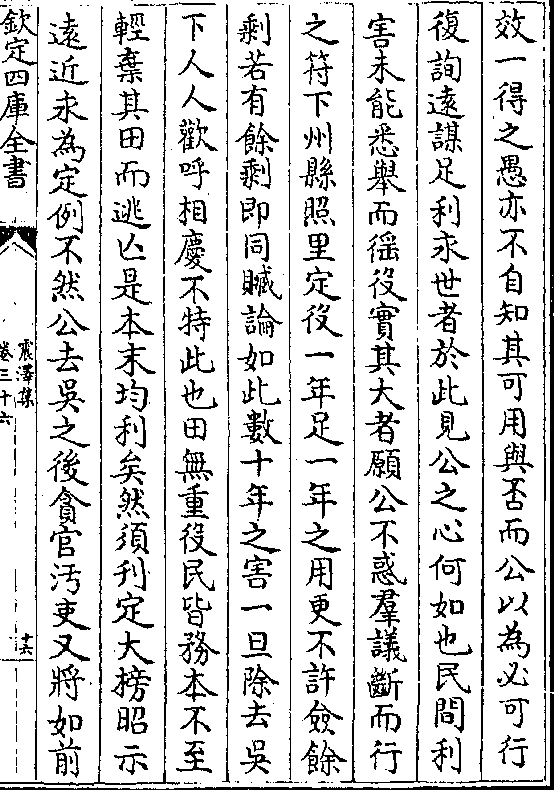 效一得之愚亦不自知其可用與否而公以為必可行
復詢遠謀足利永世者於此見公之心何如也民間利
害未能悉舉而徭役實其大者願公不惑羣議斷而行
之符下州縣照里定役一年足一年之用更不許僉餘
剩若有餘剩即同贓論如此數十年之害一旦除去吳
下人人歡呼相慶不特此也田無重役民皆務本不至
輕棄其田而逃亾是本末均利矣然須刋定大榜昭示
遠近永為定例不然公去吳之後貪官汚吏又將如前
欽定四庫全書
震澤集
卷三十六
十六